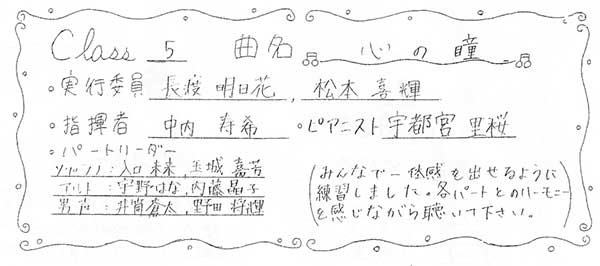 Class 5 曲名 心の瞳
・実行委員 長渡 明日花, 松本 喜輝
・指揮者 中内 寿希 ・ピアニスト 宇都宮 里桜
・パートリーダー
ソプラノ:入口 未来, 玉城 嘉芳
アルト:宇野はな, 内藤晶子
男声:井筒蒼太, 野田 将輝
(みんなで一体感を出せるように
練習しました。各パートとのハーモニー
を感じながら聴いて下さい。)